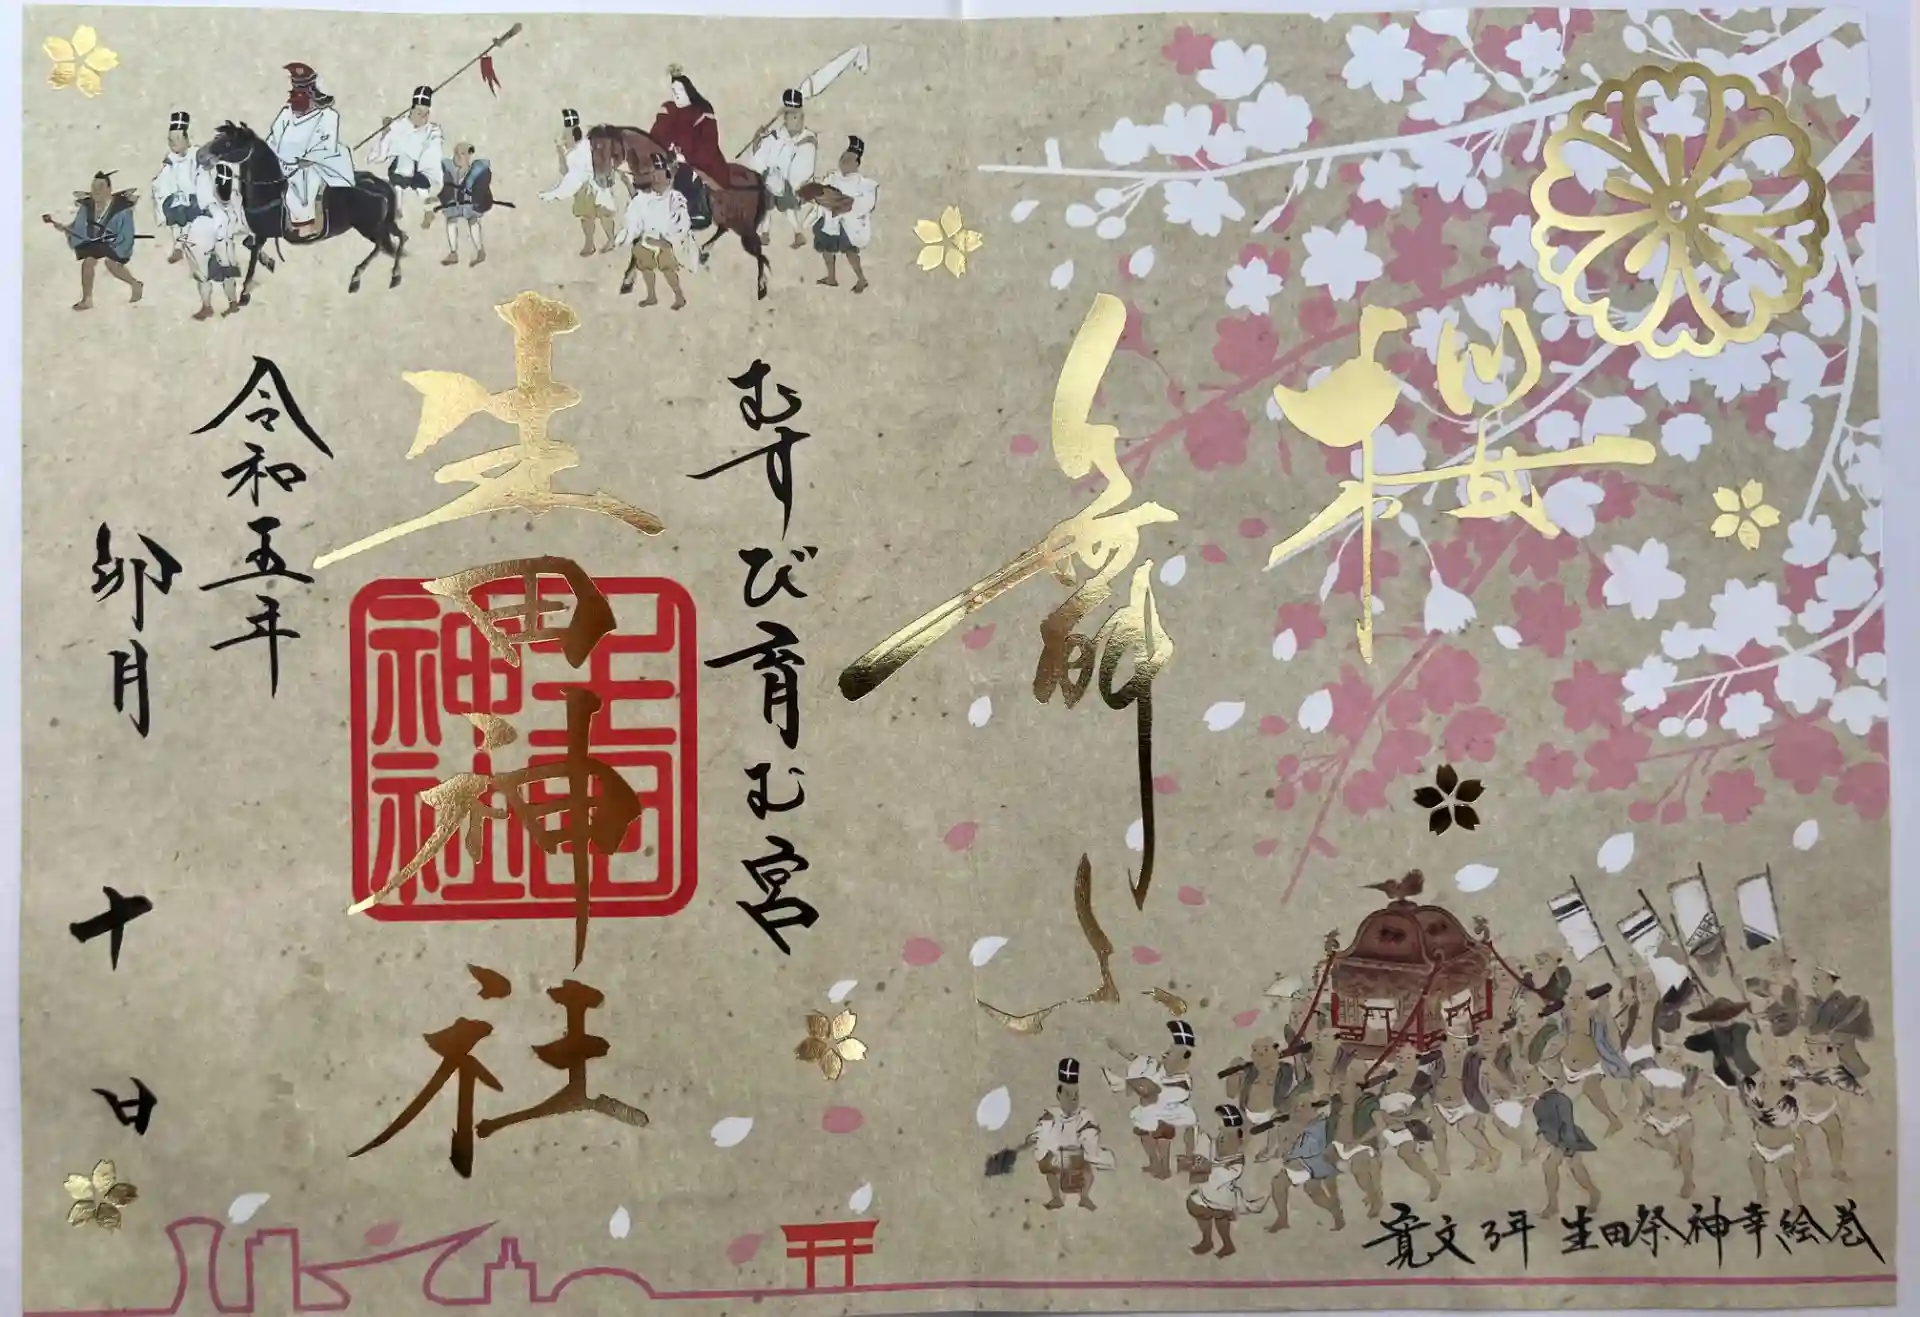 桜
舞
むすび育む宮
生田神社
生田神社
令和五年
卯月
十
日
寛文13年 生田祭神幸絵巻